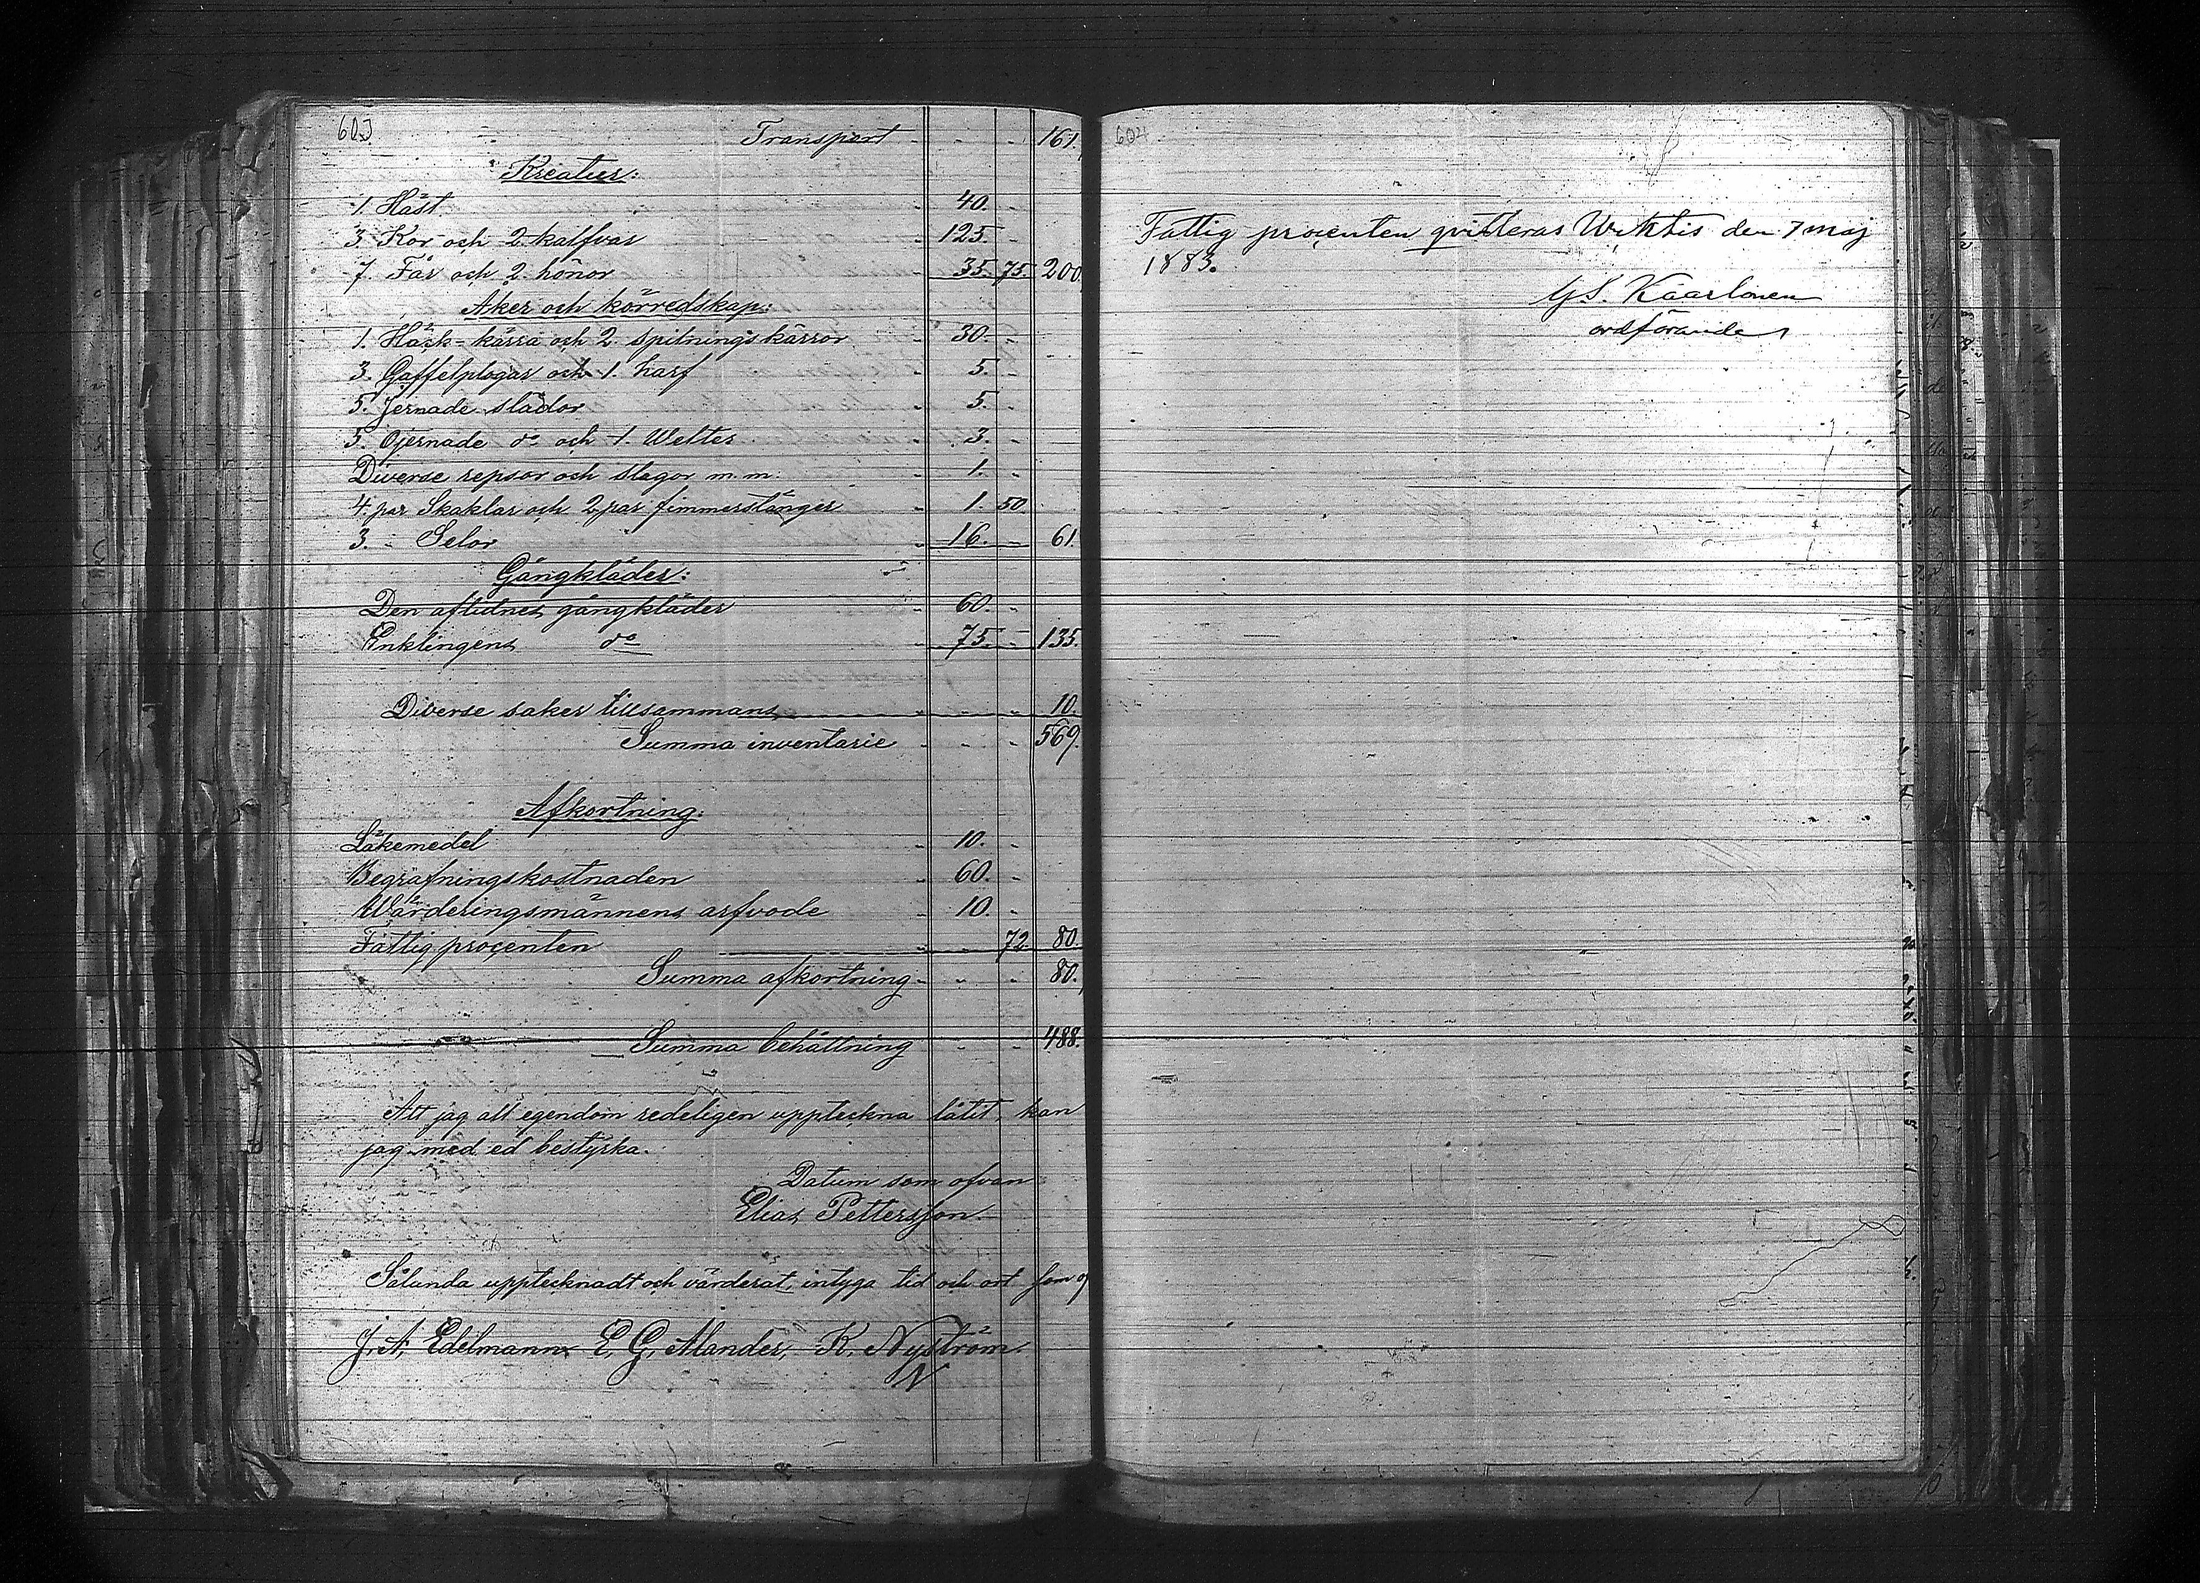 603
Transport - - - 161
Kreatur:
1. Häst - 40. -
3. Kor och 2. kalfvar - 125. -
7. Får och 2. hönor - 35. 75. 200
Åker och körredskap:
1. Häck-kärra och 2. spilnings kärror - 30. -
3. Gaffelplogar och 1. harf - 5. -
5. Jernade slädor - 5. -
5. Ojernade do och 1. Welter - 3. -
Diverse repsor och slagor m.m. - 1. -
4. par Skaklar och 2 par fimmerstänger - 1. 50.
3. - Selor - 16. - 61.
Gångkläder:
Den aflidnes gångkläder - 60. -
Enklingens do - 75. - 135.
Diverse saker tillsammans - - - 10.
Summa inventarie - - - 569.
Afkortning:
Läkemedel - 10. -
Begrafningskostnaden - 60. -
Wärderingsmännens arfvode - 10. -
Fattig procenten - - 72. 80.
Summa afkortning - - - 80.
Summa behållning - - 488.
Att jag all egendom redeligen uppteckna låtit, kan
jag med ed bestyrka.
Datum som ofvan
Elias Pettersson
Sålunda upptecknadt och värderat, intyga tid och ort som of
J. A. Edelmann E. G. Alander, K. Nyström.
604
Fattig procenten qvitteras Wichtis den 7 maj
1883.
G S. Kaarlonen
ordförande